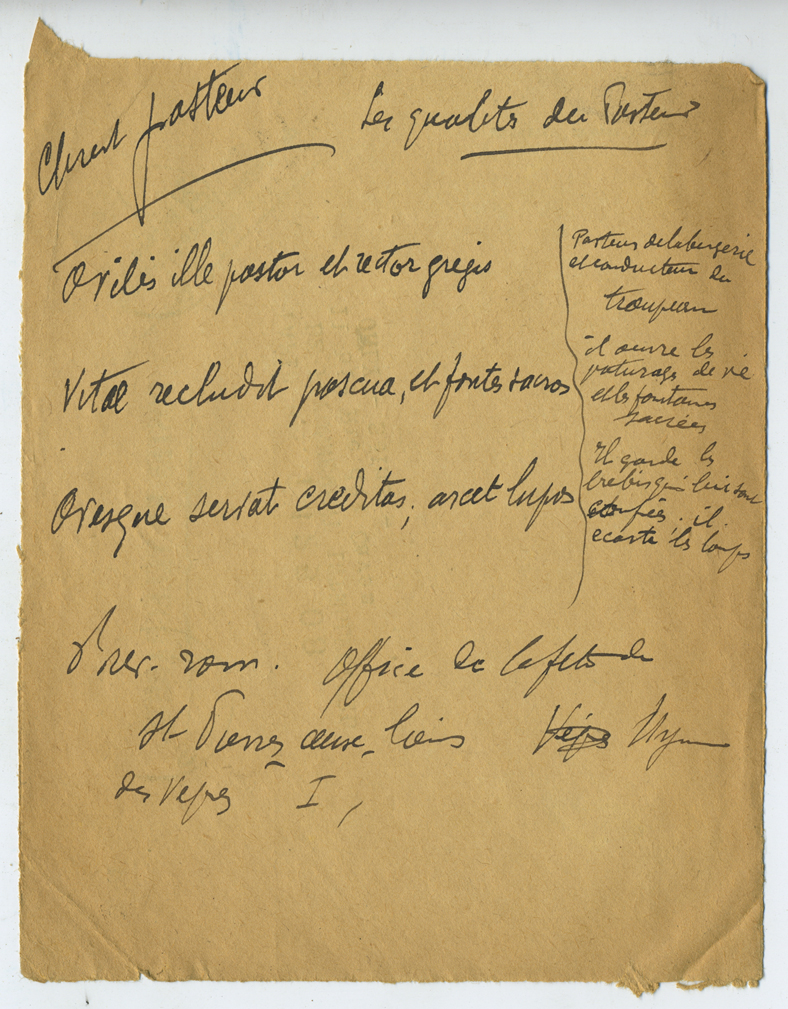 Christ pasteur
Les qualités du Pasteur
Ovilis ille pastor et rector gregis
Vitae recludit pascua, et fontes sacros
Ovesque servat creditas, arcet lupos
Pasteur de la bergerie
et conducteur du
troupeau
il ouvre les
paturages de vie
et les fontaines
sacrées
Il garde les
brebis qui lui sont
confiées. il
ecarte les loups
Brev. rom. Office de la fete de
St Pierre aux liens Vêpres Hymne
des Vepres I,